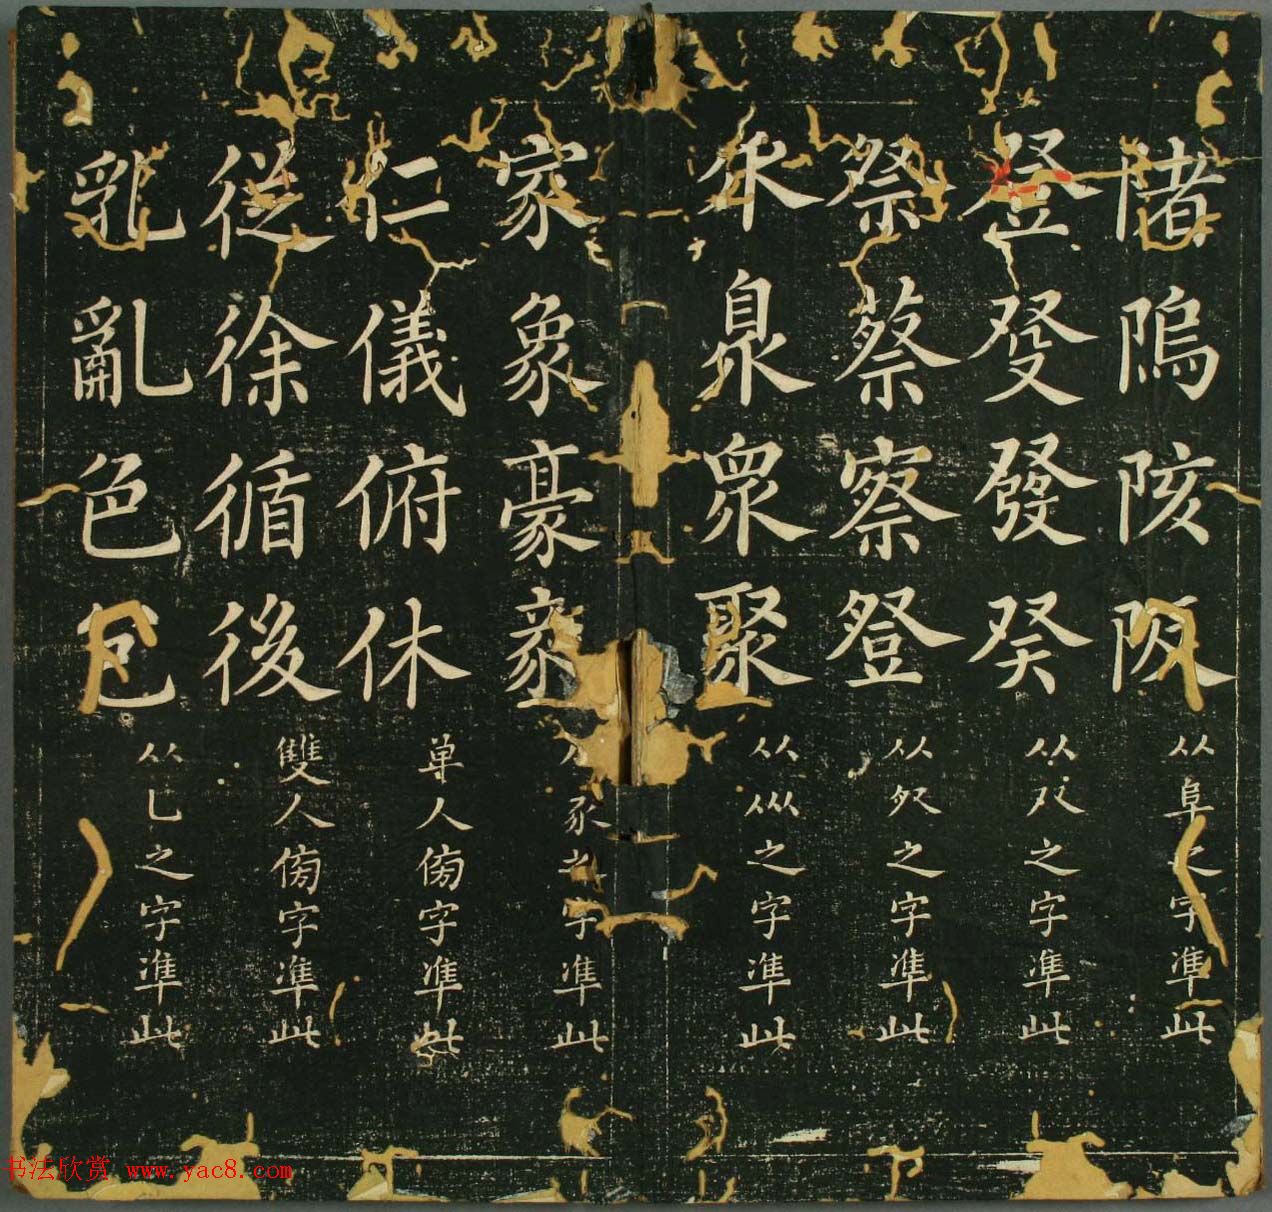 陼隖陔阪从阜之字準此
登發發癸从癶之字準此
祭蔡察登从𣦼之字準此
乑臮眾聚从乑之字準此
家象豪豙豕之字準此
仁儀俯休單人傍字準此
從徐循後雙人傍字準此
乳亂色包从乚之字準此
书法欣赏 www.yac8.com